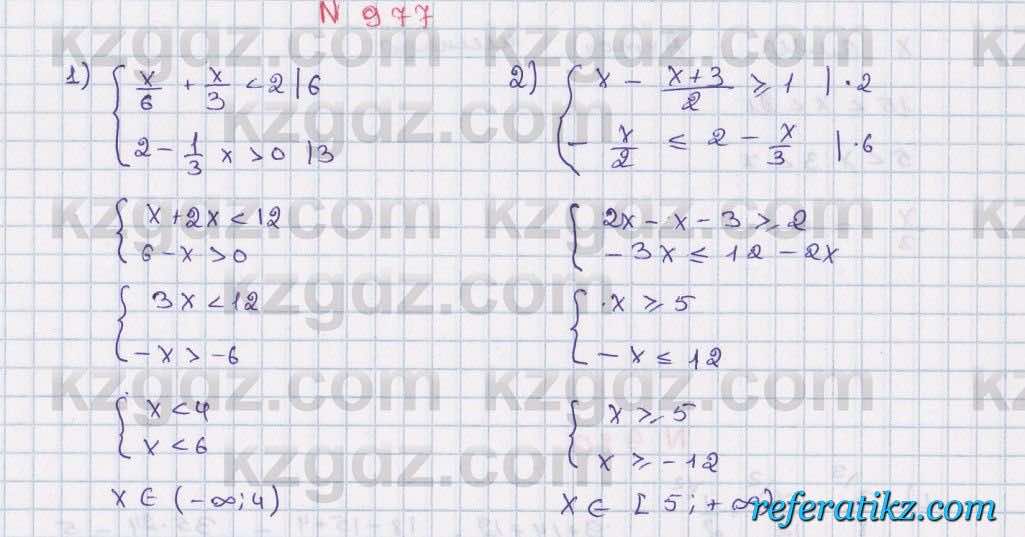 N 977
1) { x/6 + x/3 < 2 | 6
2 - 1/3 x > 0 | 3
{ x + 2x < 12
6 - x > 0
{ 3x < 12
-x > -6
{ x < 4
x < 6
x ∈ (-∞; 4)
2) { x - (x+3)/2 ≥ 1 | · 2
- x/2 ≤ 2 - x/3 | · 6
{ 2x - x - 3 ≥ 2
-3x ≤ 12 - 2x
{ x ≥ 5
-x ≤ 12
{ x ≥ 5
x ≥ -12
x ∈ [5; +∞)
kzgdz.com
referatikz.com